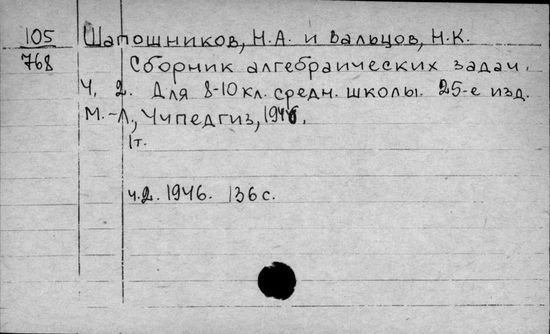 105 Шапошников, Н.А. и Вальцов, Н.К.
768 Сборник алгебраических задач.
Ч. 2. Для 8-10 кл. средн. школы. 25-е изд.
М.-Л., Учпедгиз, 1946.
1т.
ч.2. 1946. 136 с.